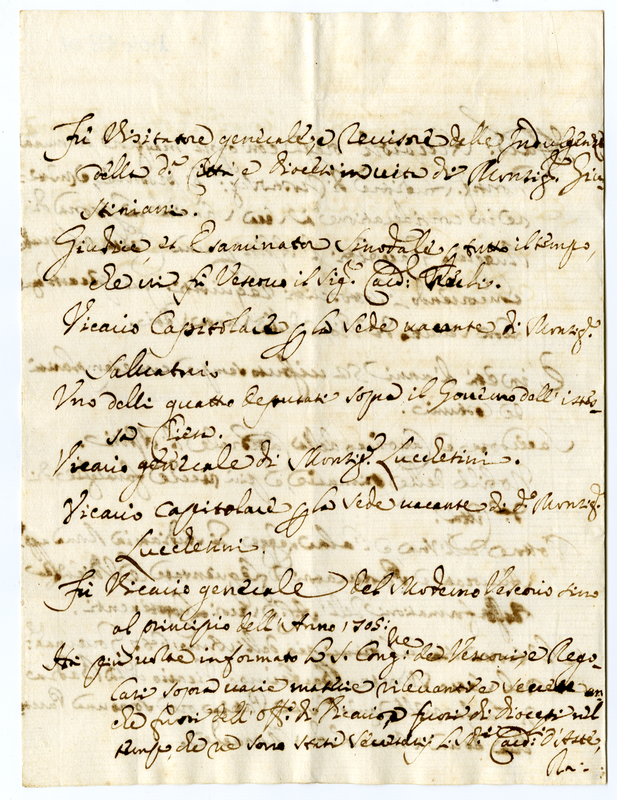 Fù Visitatore generale, e Revisore delle Indulgenze
della d.ª Città e diocesi in vita di Monsig.r Giu-
stiniani.
Giudice, et Esaminator Sinodale p tutto il tempo,
che ivi fù Vescovo il Sig.r Card.l
Vicario Capitolare p la sede vacante di Monsig.r
Salvatrio
Uno delli quatto deputati sopra il Governo dell'istes-
sa
Vicario generale di Monsig.r Lucchetini.
Vicario Capitolare p la sede vacante di d.o Monsig.r
Lucchetini.
Fù Vicario generale del Moderno Vescovo sino
al principio dell'Anno 1705:
Hà più volte informato la S. Cong.ne de Vescovi, e Rego-
lari sopra varie materie rilevanti, e secrete an
che fuori dell'off.o di Vicario, e fuori di diocesi nel
tempo, che ne sono stati Secretarij li SS.ri Card.li d'Aste,